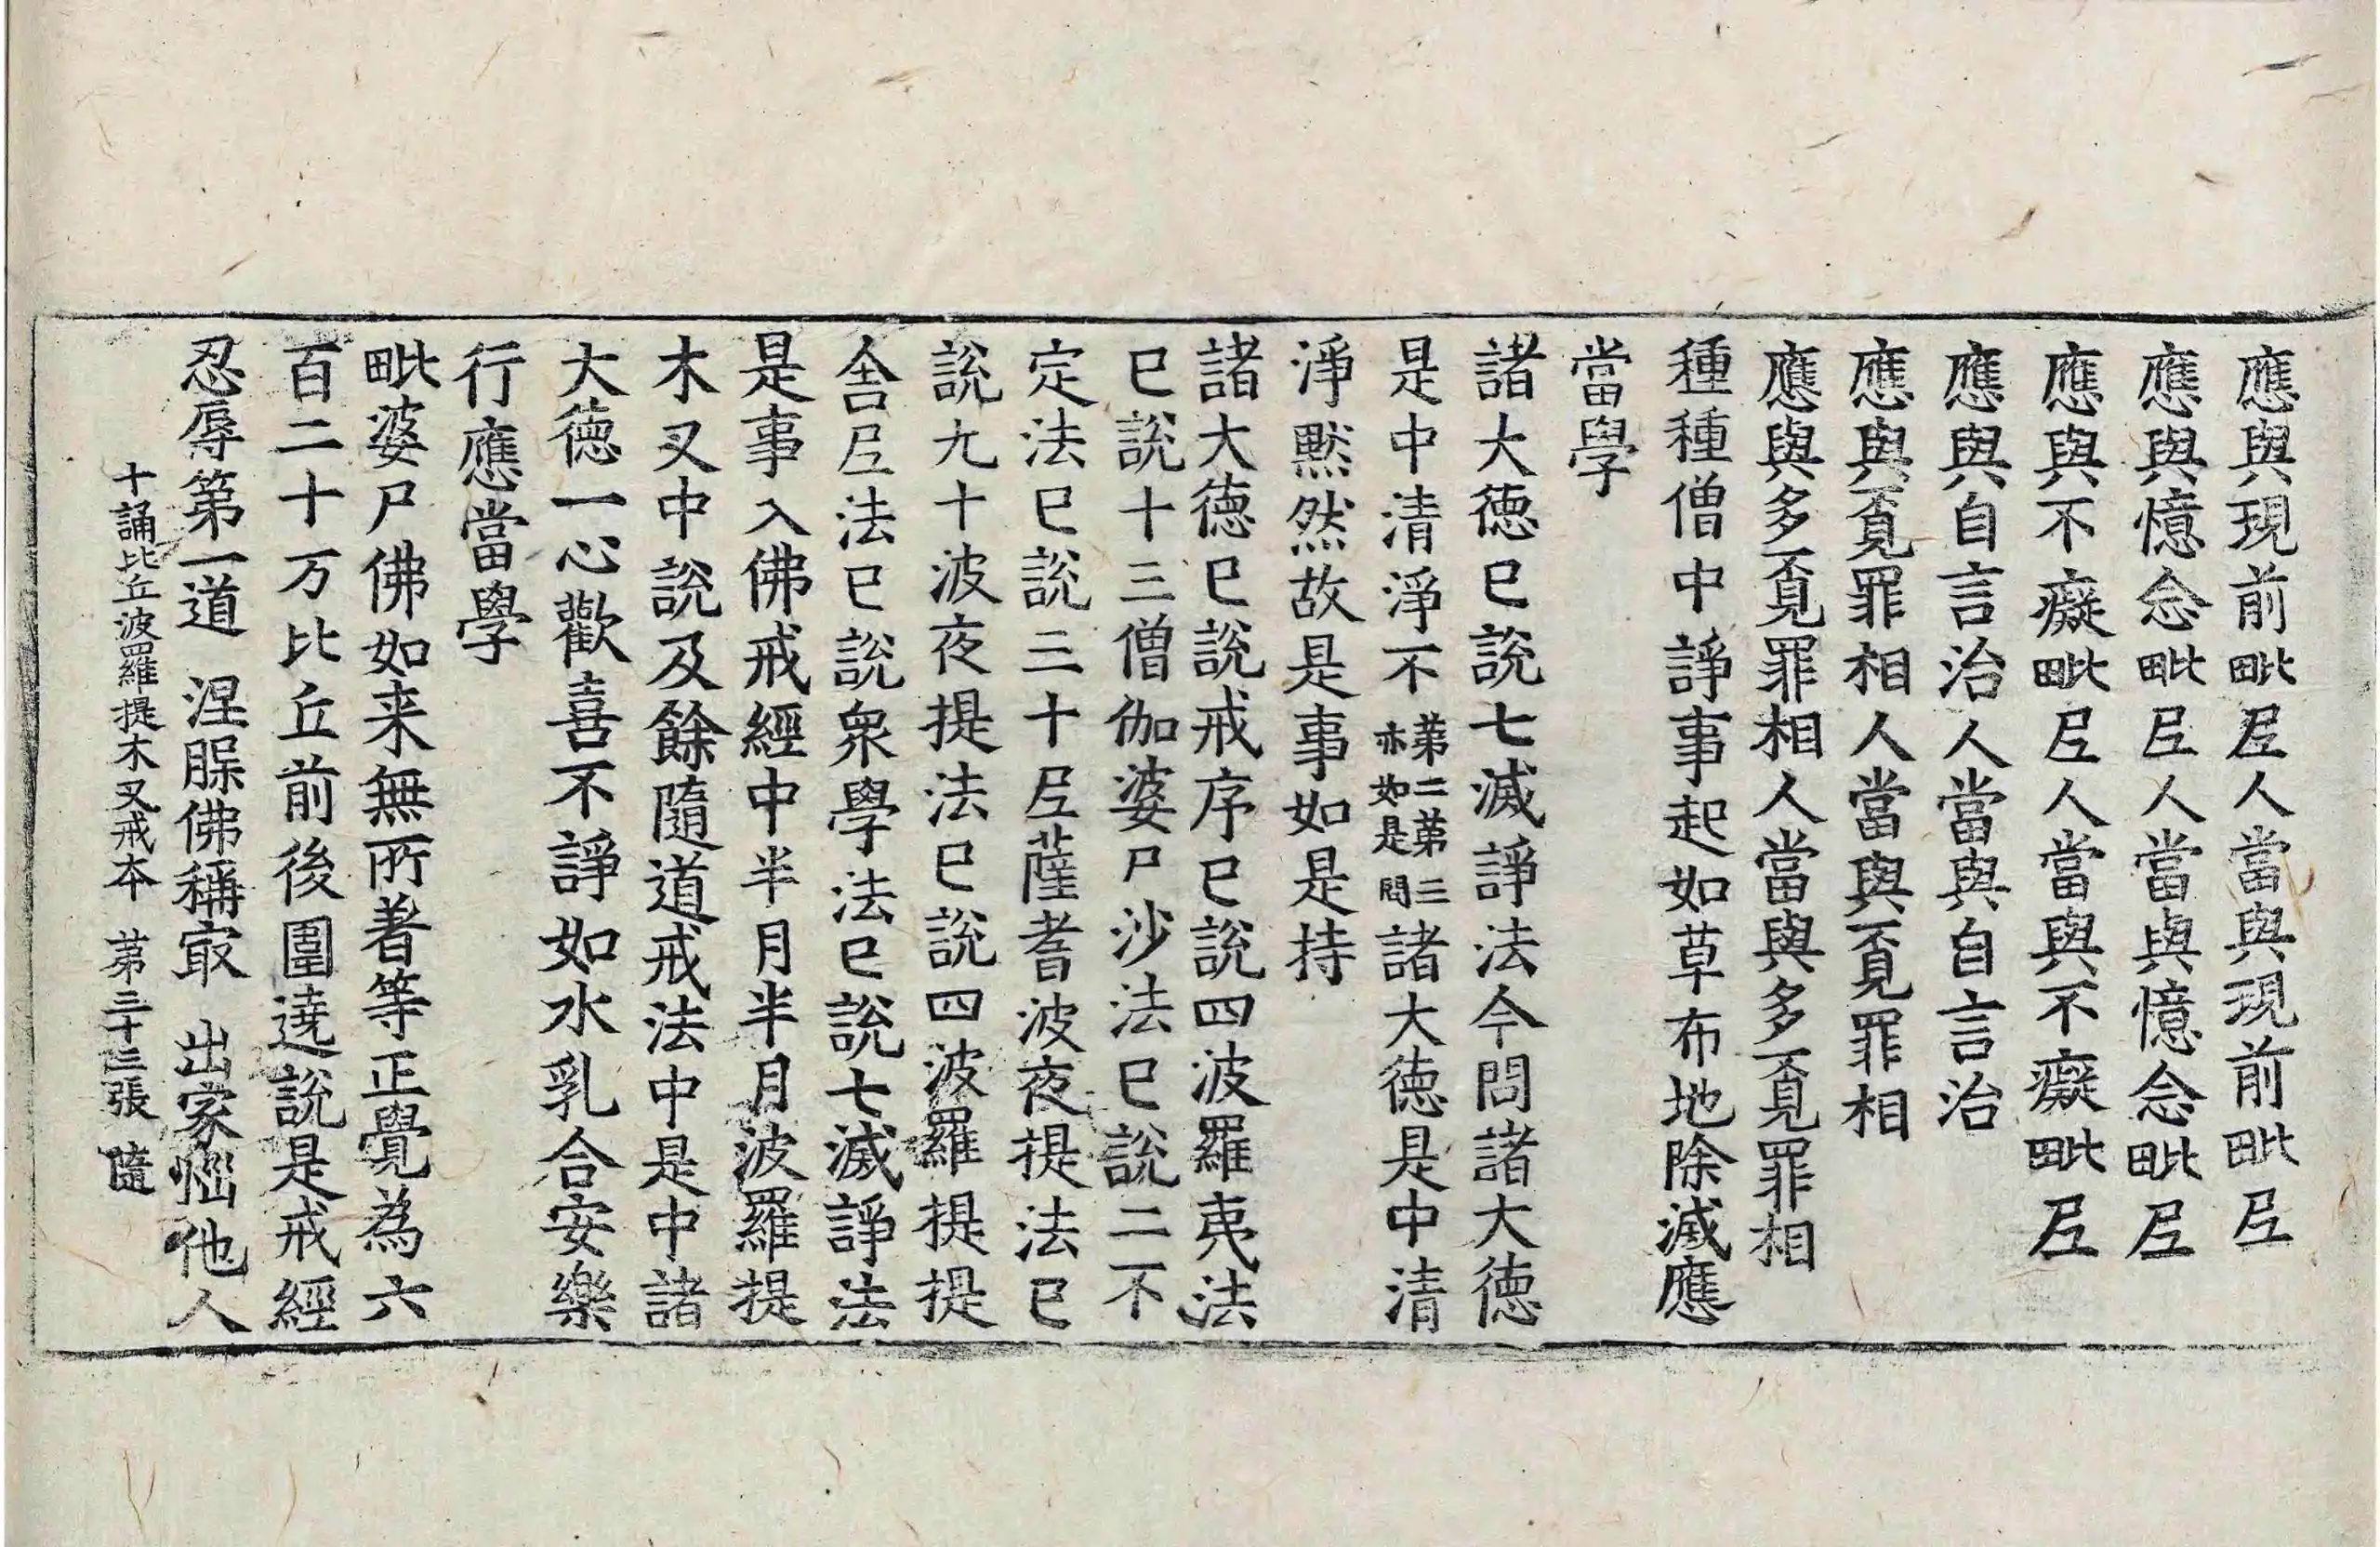 應與現前毗尼人當與現前毗尼
應與憶念毗尼人當與憶念毗尼
應與不癡毗尼人當與不癡毗尼
應與自言治人當與自言治
應與覓罪相人當與覓罪相
應與多覓罪相人當與多覓罪相
種種僧中諍事起如草布地除滅應
當學
諸大德已說七滅諍法今問諸大德
是中清淨不第二第三亦如是問諸大德是中清
淨黙然故是事如是持
諸大德已說戒序已說四波羅夷法
已說十三僧伽婆尸沙法已說二不
定法已說三十尼薩耆波夜提法已
說九十波夜提法已說四波羅提提
舍尼法已說衆學法已說七滅諍法
是事入佛戒經中半月半月波羅提
木叉中說及餘隨道戒法中是中諸
大德一心歡喜不諍如水乳合安樂
行應當學
毗婆尸佛如来無所著等正覺為六
百二十万比丘前後圍遶說是戒經
忍辱第一道 涅槃佛稱冣 出家惱他人
十誦比丘波羅提木叉戒本 第三十三張 隨